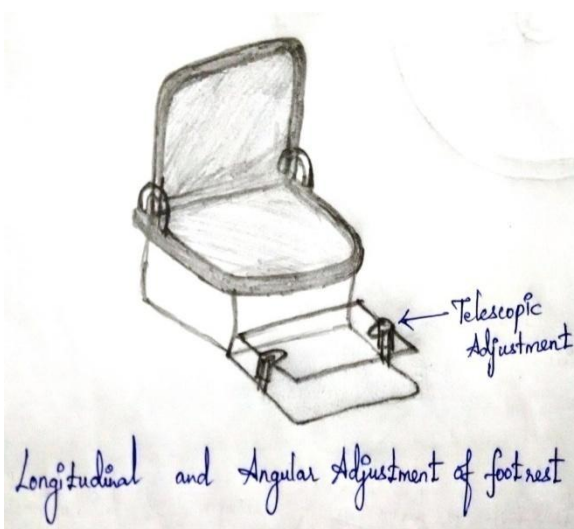 Telescopic
Adjustment
Longitudinal and Angular Adjustment of foot rest